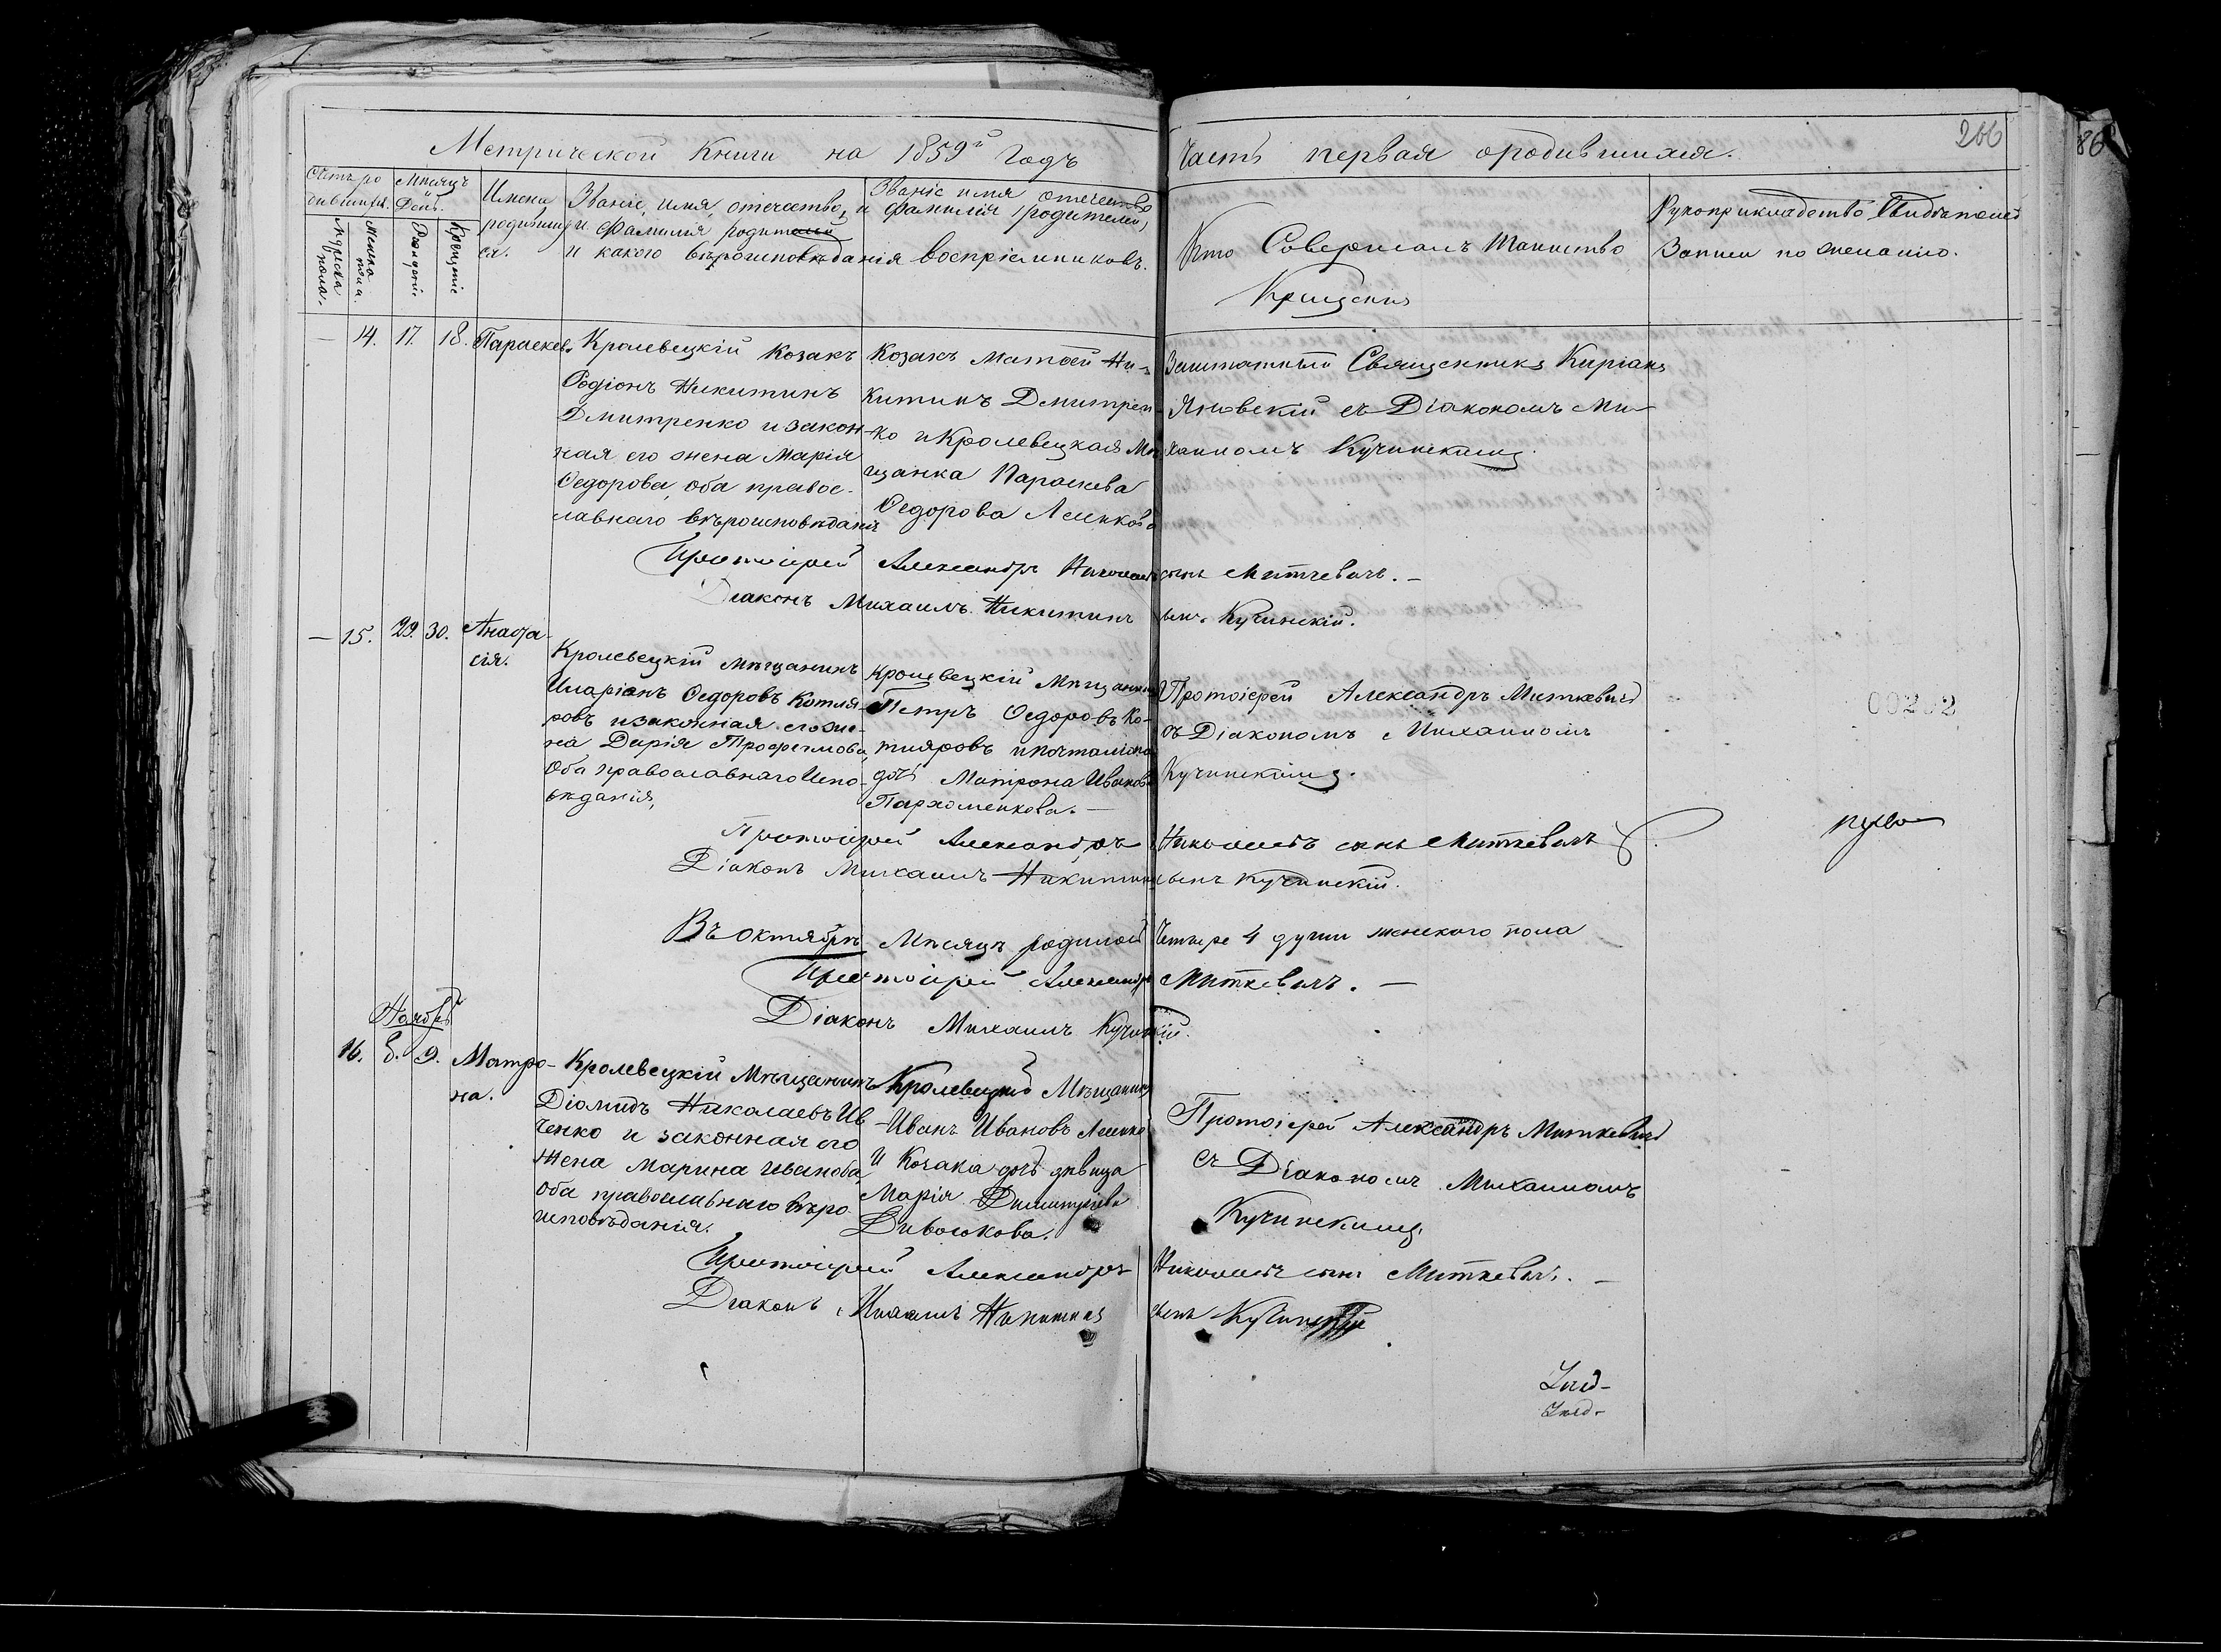 Метрической Книги на 1859й Годъ
Часть первая о родившихся.
266
86
Счетъ ро
дившихся.
Мужеска
пола.
Женска
пола.
Мѣсяцъ
и
День.
Рожденіе
Крещеніе
Имена
родивших
ся.
Званіе, имя, отечество,
и фамилія родителей
и какого вѣроисповѣданія
Званіе имя отечество
и фамилія
воспріемниковъ.
Кто Совершалъ таинство
Крещенія
Рукоприкладство свидѣтелей
Записи по желанію.
— 14. 17. 18. Параскев.
Кролевецкій Козакъ
Родіонъ Никитинъ
Дмитренко и закон-
ная его жена Марія
Ѳедорова, оба правос-
лавнаго вѣроисповѣданія
Козакъ Матѳей Ни-
китинъ Дмитрен-
ко и Кролевецкая Мѣ
щанка Параскева
Ѳедорова
Заштатный Священникъ Кипріанъ
Яновскій съ Діакономъ Ми-
хаиломъ Кучинскимъ.
Протоіерей Александръ Николаевъ сынъ Миткевичъ. —
Діаконъ Михаилъ Никитинъ сынъ Кучинскій.
— 15. 29. 30. Анаста-
сія.
Кролевецкій Мѣщанинъ
Иларіонъ Ѳедоровъ Котля-
ровъ и законная его же-
на Дарія Трофимова,
Оба православнаго Испо-
вѣданія,
Кролевецкій Мѣщанинъ
Петръ Ѳедоровъ Ко-
тляровъ и почталіона
дочь Матрона Иванова
Пархоменкова. —
Протоіерей Александръ Миткевичъ
съ Діакономъ Михаиломъ
Кучинскимъ.
Протоіерей Александръ Николаевъ сынъ Миткевичъ
Діаконъ Михаилъ Никитинъ сынъ Кучинскій.
00202
Въ Октябрѣ Мѣсяцѣ родилось Четыре 4 души женского пола
Протоіерей Александръ Миткевичъ. —
Діаконъ Михаилъ Кучинскій.
Ноябрь
16. 8. 9. Матро-
на.
Кролевецкій Мѣщанинъ
Діомидъ Николаевъ Ив
ченко и законная его
жена Марина Иванова,
Оба православнаго вѣро
исповѣданія.
Кролевецкій Мѣщанинъ
Иванъ Ивановъ
и Козака дочь дѣвица
Марія Димитріева
Протоіерей Александръ Миткевичъ
съ Діакономъ Михаиломъ
Кучинскимъ.
Протоіерей Александръ Николаевъ сынъ Миткевичъ. —
Діаконъ Михаилъ Никитинъ сынъ Кучинскій